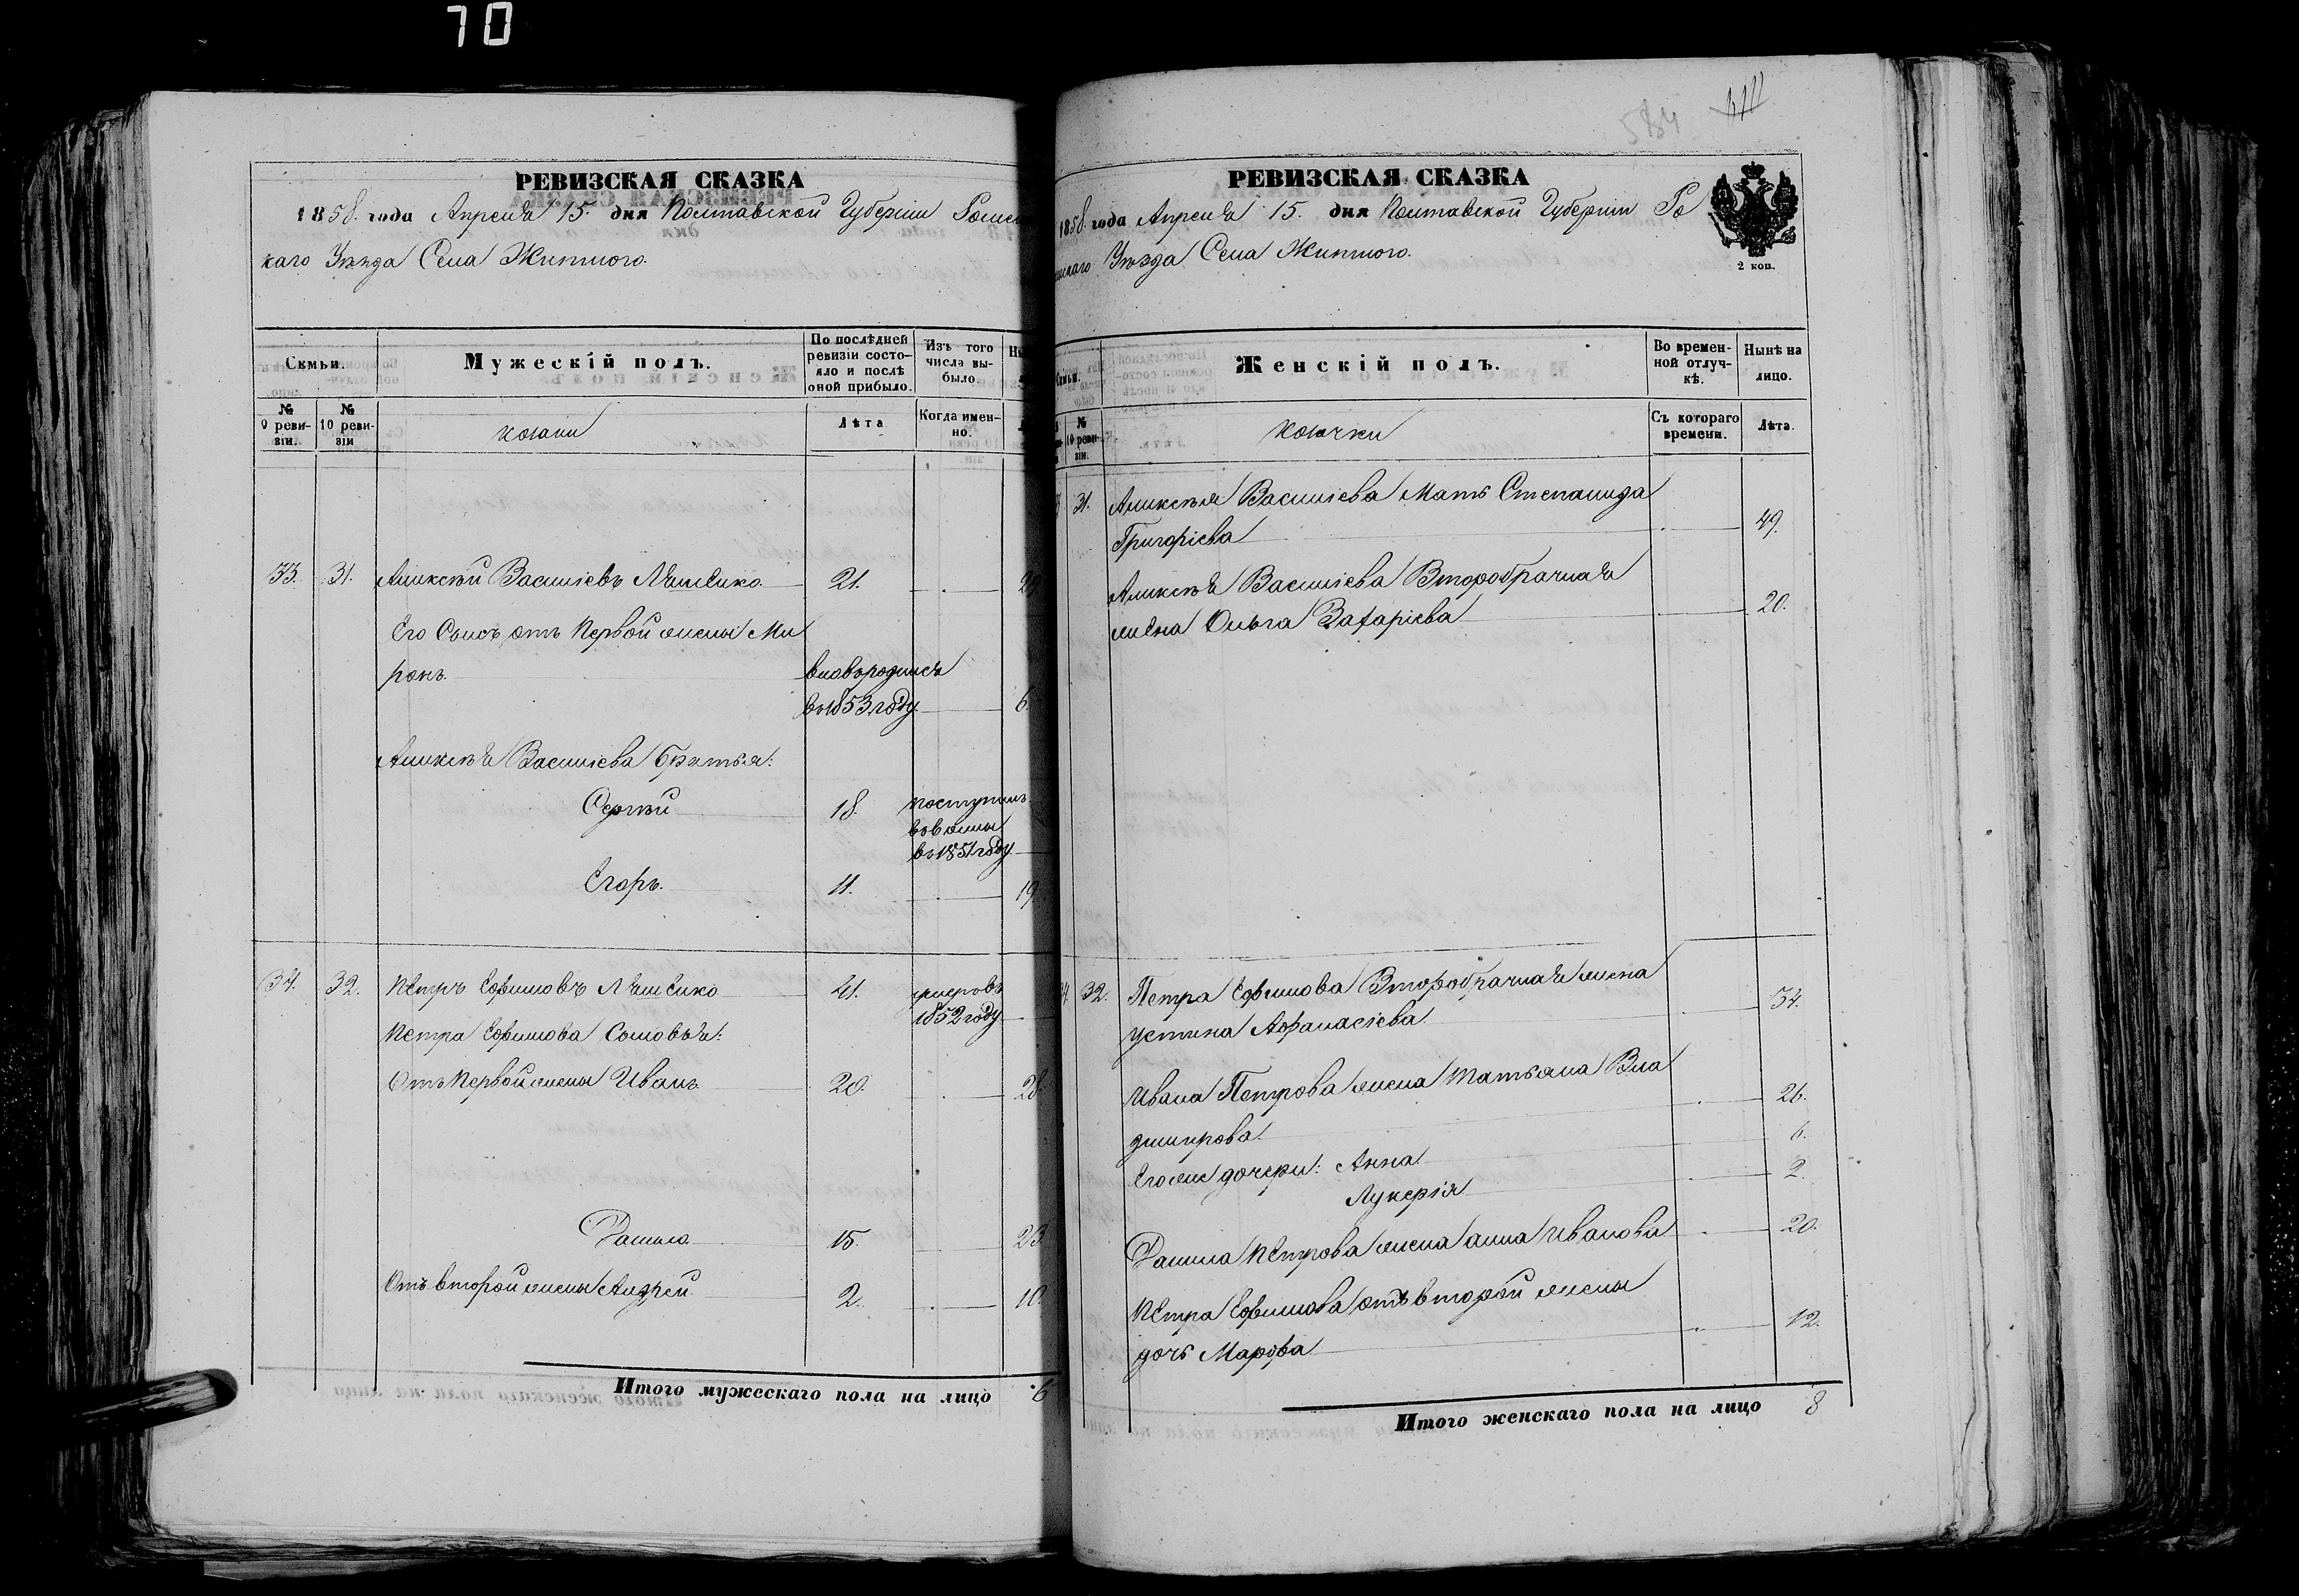 70
РЕВИЗСКАЯ СКАЗКА
1858. года Апреля 15. дня Полтавской Губерніи Роменс
каго Уѣзда Села Житного.
Семьи.
Мужескій полъ.
По послѣдней ревизіи состояло и послѣ оной прибыло.
Изъ того числа выбыло.
№ 9 ревизіи.
№ 10 ревизіи
козаки
Лѣта
Когда именно.
33. 31. Аликсѣй Василіевъ Ляшенко 21. 29
Его Сынъ отъ Первой жены Ми
ронъ вновьродился
въ 1853 году 6.
Аликсѣя Василіева братья:
Сергѣй 18. поступилъ
въ 1851 году
Егоръ. 11. 19
34. 32. Петръ Ефимовъ Ляшенко 41. умеръ въ
1852 году
Петра Ефимова Сыновья:
Отъ Первой жены Иванъ 20. 28.
Данило 15. 23
Отъ второй жены Андрей 2. 10.
Итого мужескаго пола на лицо 6
584
РЕВИЗСКАЯ СКАЗКА
1858. года Апреля 15. дня Полтавской Губерніи Ро
менскаго Уѣзда Села Житного.
2 коп.
Женскій полъ.
Во временной отлучкѣ.
Нынѣ на лицо.
№ 10 ревизіи.
козачки
Съ котораго времени.
Лѣта.
31. Аликсѣя Василіева Мать Степанида
Григоріева 49.
Аликсѣя Василіева Второбрачная
жена Ольга Захаріева 20.
32. Петра Ефимова Второбрачная жена
Устина Афанасіева 34.
Ивана Петрова жена Татьяна Вла
димирова 26.
Егоже дочери: Анна 6.
Лукерія 2.
Данила Петрова жена анна Иванова 20.
Петра Ефимова отъ второй жены
дочь Марфа 12.
Итого женскаго пола на лицо 8